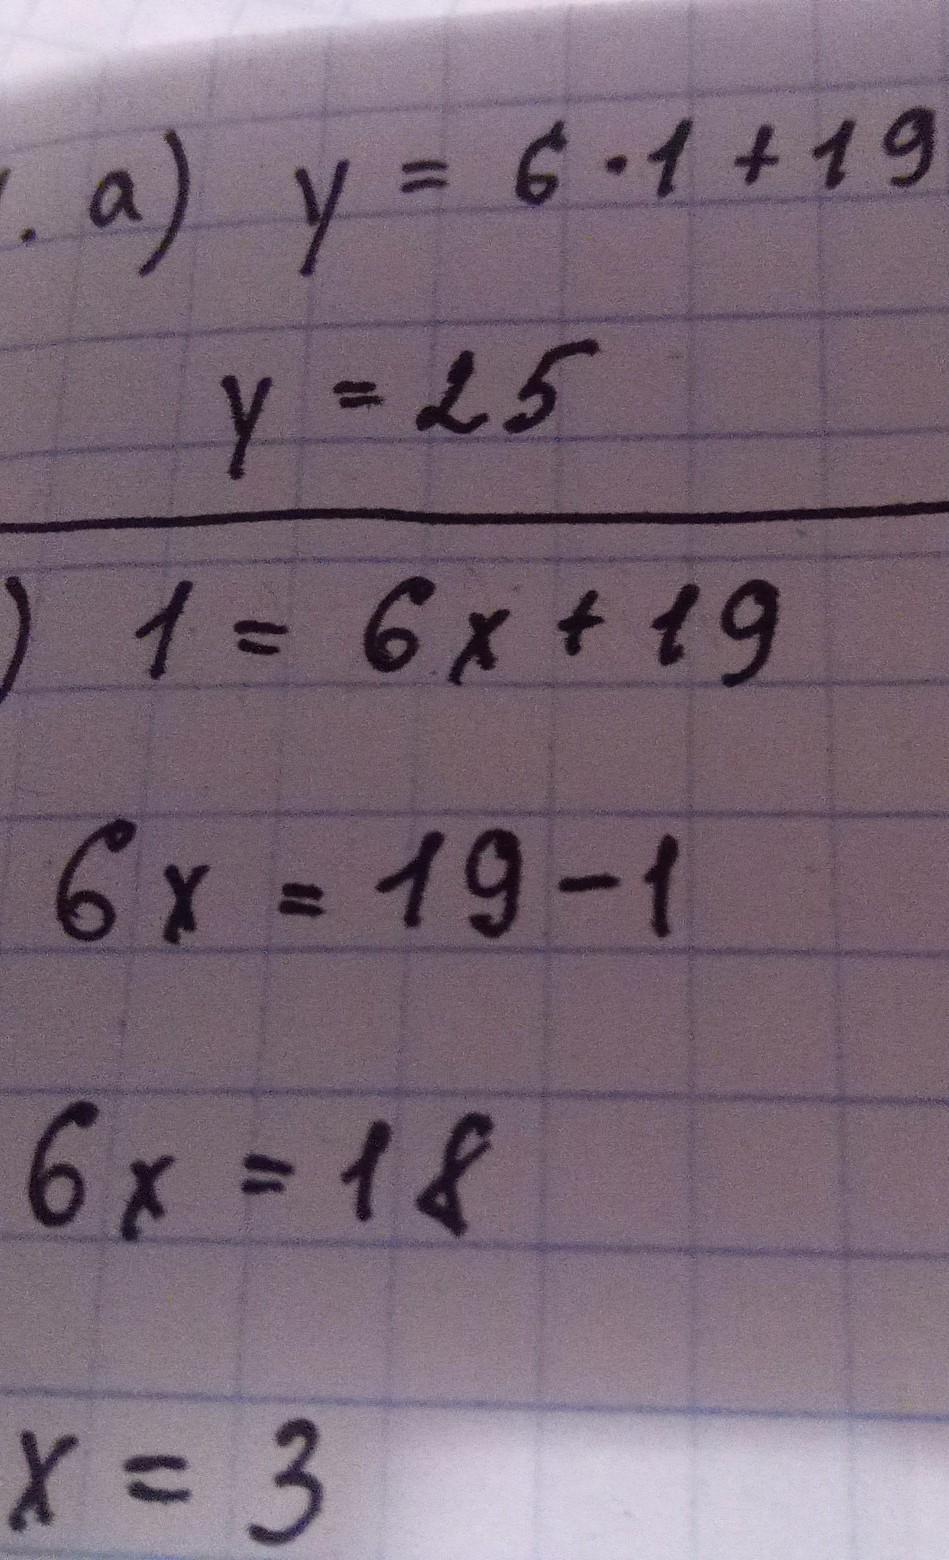 . a) y = 6 · 1 + 19
y = 25
) 1 = 6x + 19
6x = 19 - 1
6x = 18
x = 3